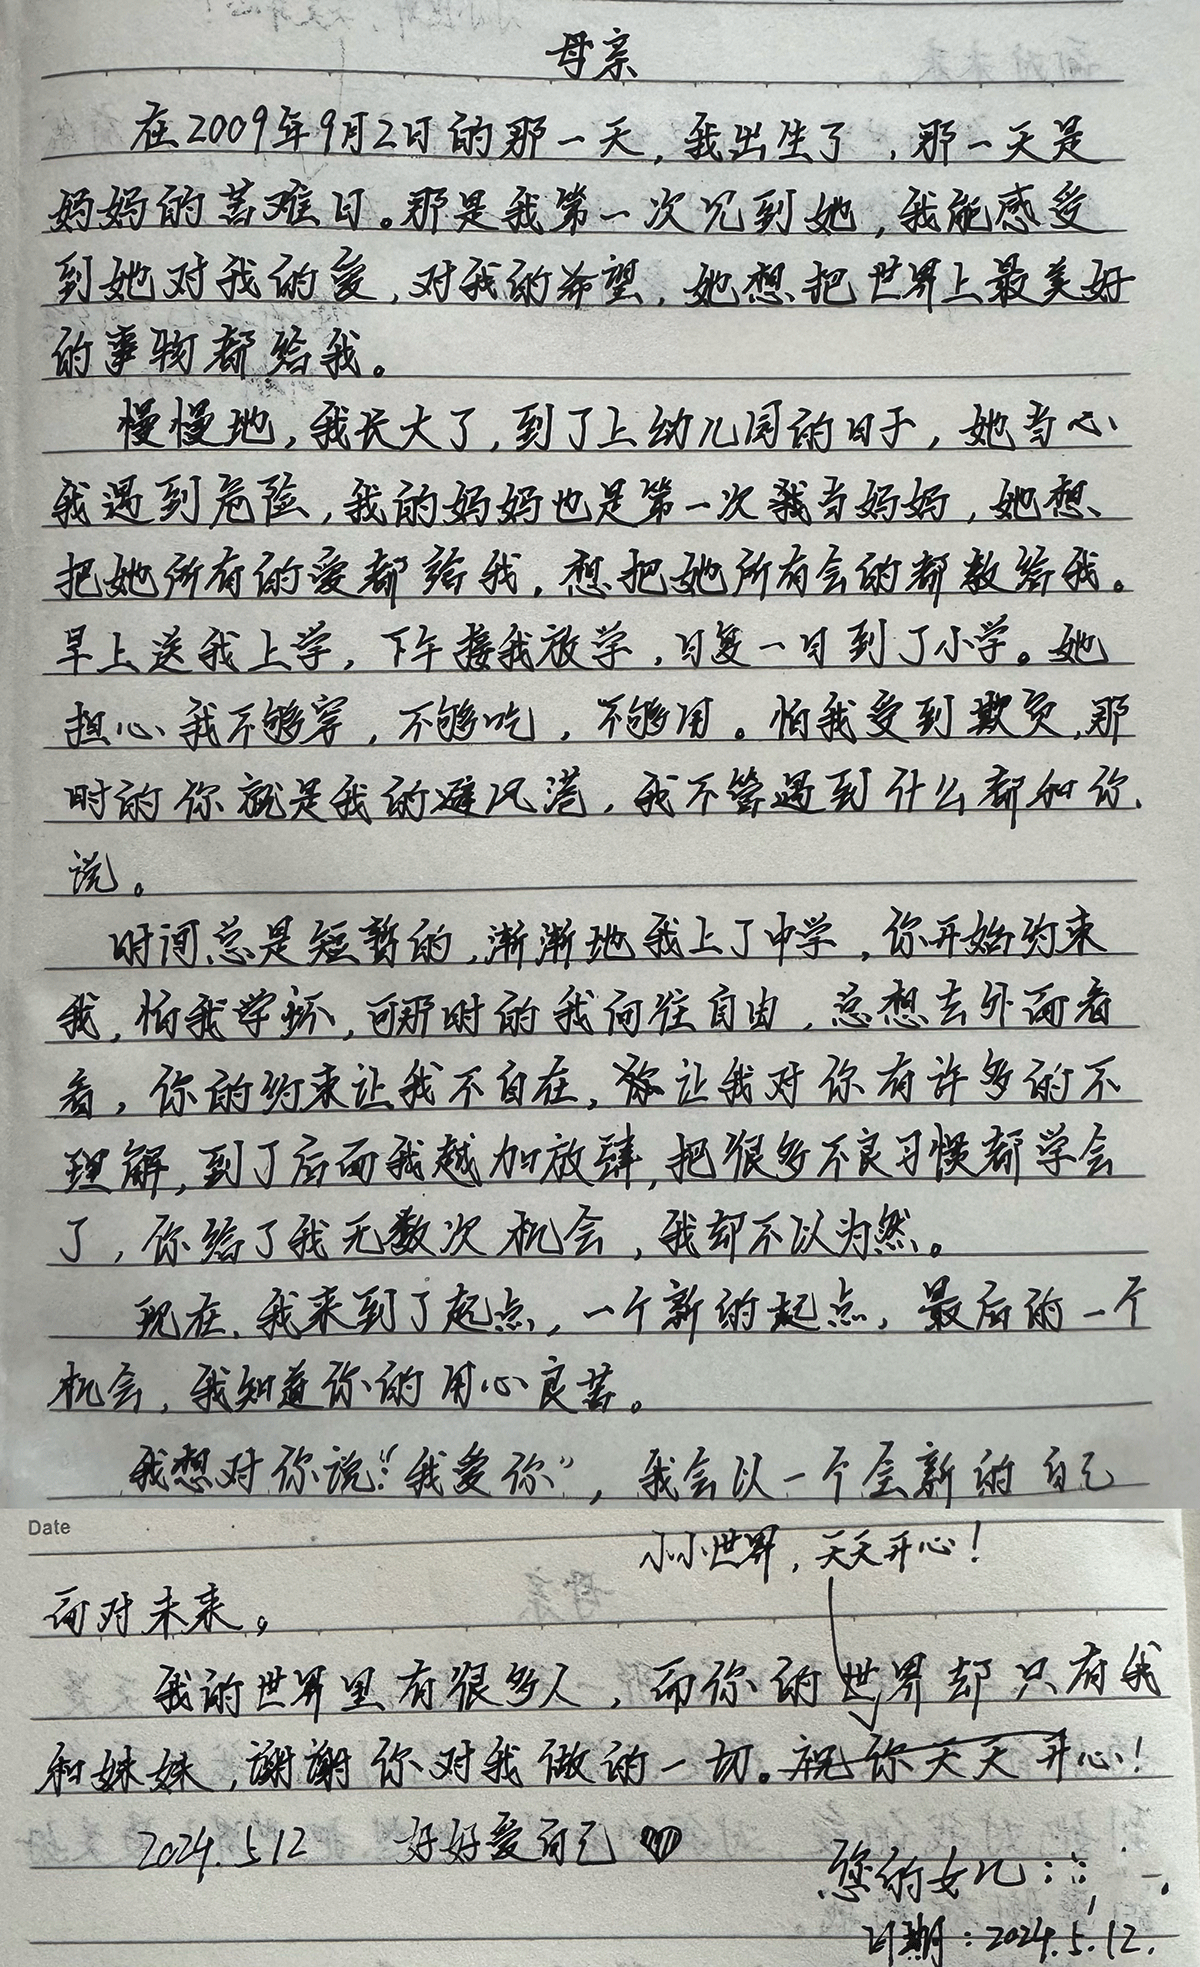 母亲
在2009年9月2日的那一天,我出生了,那一天是
妈妈的苦难日。那是我第一次见到她,我能感受
到她对我的爱,对我的希望,她想把世界上最美好
的事物都给我。
慢慢地,我长大了,到了上幼儿园的日子,她当心
我遇到危险,我的妈妈也是第一次当妈妈,她想
把她所有的爱都给我,想把她所有会的都教给我。
早上送我上学,下午接我放学,日复一日到了小学。她
担心我不够穿,不够吃,不够用。怕我受到欺负,那
时的你就是我的避风港,我不管遇到什么都和你
说。
时间总是短暂的,渐渐地我上了中学,你开始约束
我,怕我学坏,可那时的我向往自由,总想去外面看
看,你的约束让我不自在,让我对你有许多的不
理解,到了后面我越加放肆,把很多不良习惯都学会
了,你给了我无数次机会,我却不以为然。
现在,我来到了起点,一个新的起点,最后的一个
机会,我知道你的用心良苦。
我想对你说:“我爱你”,我会以一个全新的自己
Date
小小世界,天天开心!
面对未来。
我的世界里有很多人,而你的世界却只有我
和妹妹,谢谢你对我做的一切。祝你天天开心!
2024.5.12 好好爱自己
您的女儿:
日期:2024.5.12.